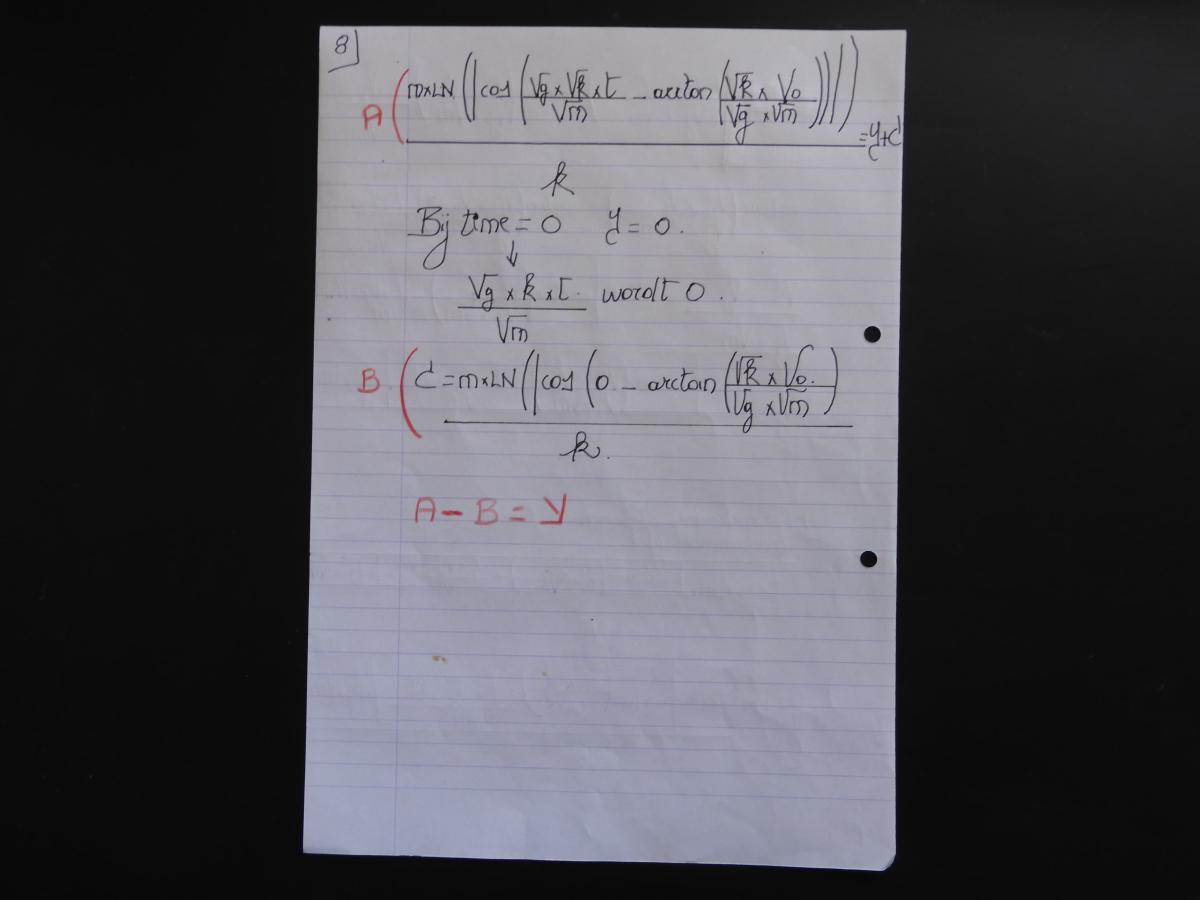 8
A ( m×LN(|cos(√g×√k×t/√m - arctan(√k×V0/√g×√m))|) / k = y + C
Bij time = 0 y = 0.
↓
√g×k×t/√m wordt 0.
B ( C = m×LN(|cos(0 - arctan(√k×V0./√g×√m) / k.
A - B = y